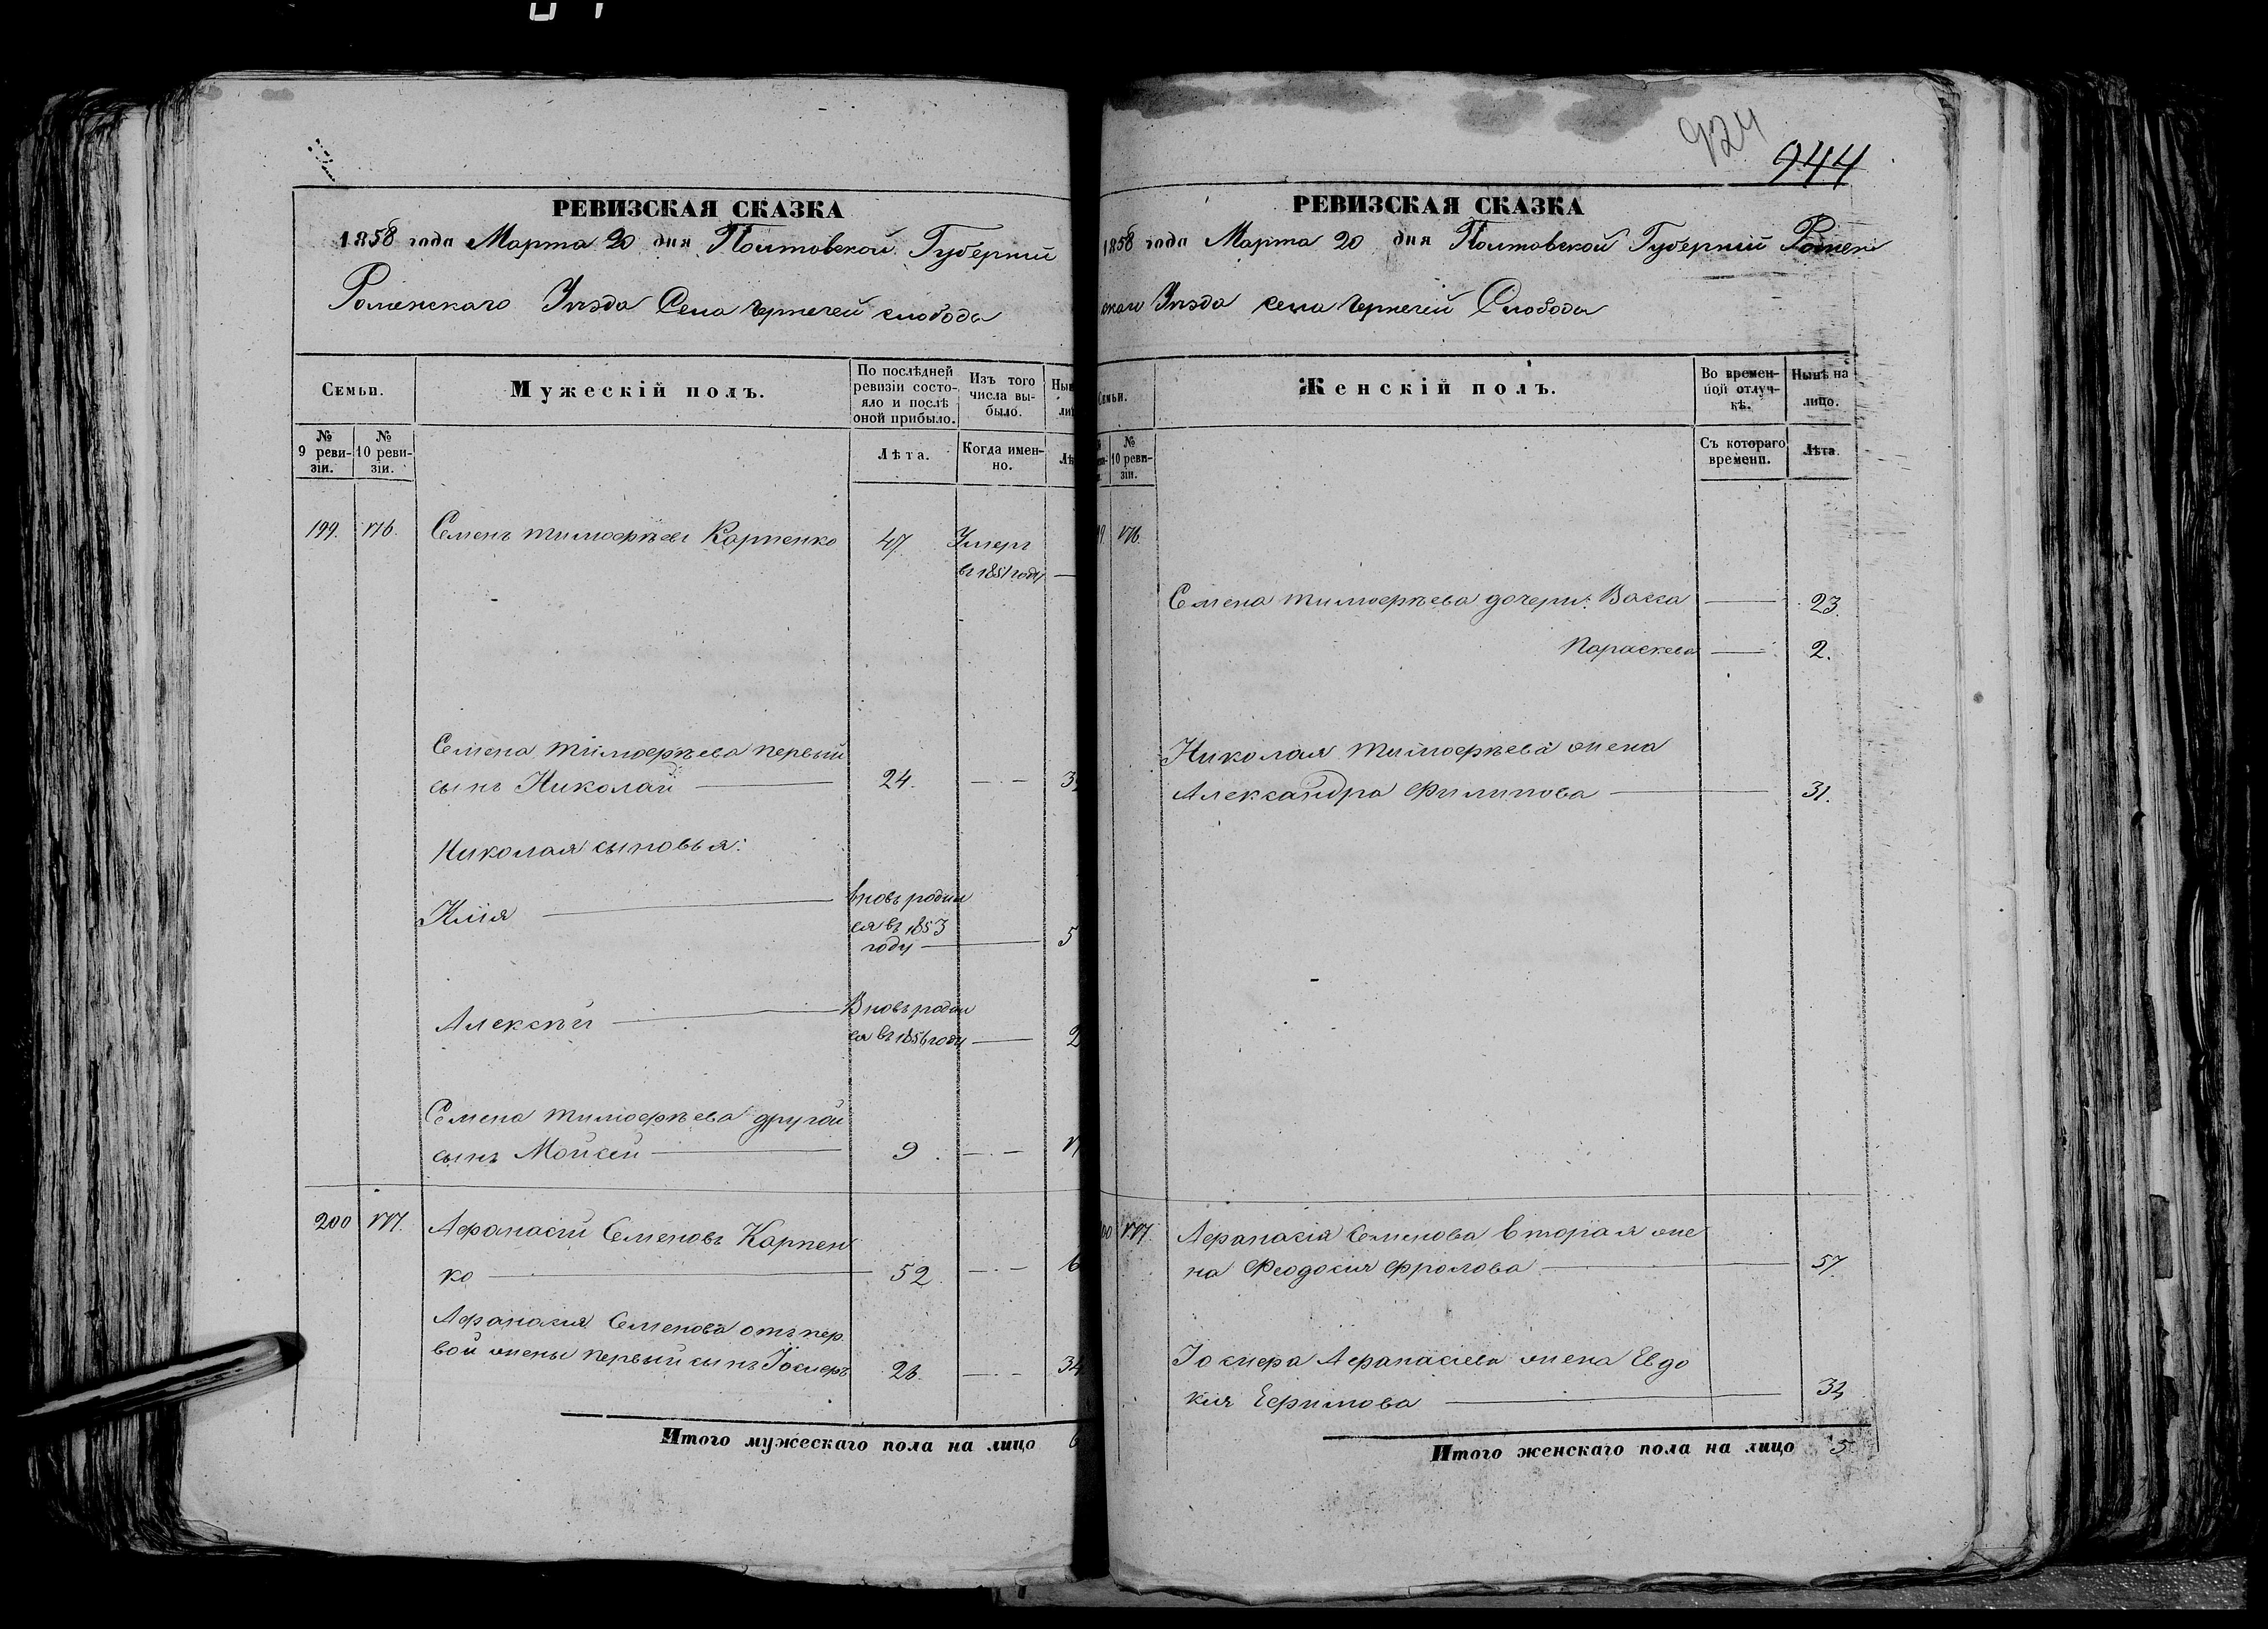 924
944
РЕВИЗСКАЯ СКАЗКА
1858 года Марта 20 дня Полтавской Губерніи
Роменскаго Уѣзда Села Чернечей слободы
Семьи.
Мужескій полъ.
По послѣдней ревизіи состояло и послѣ оной прибыло.
Изъ того числа выбыло.
№ 9 ревизіи.
№ 10 ревизіи.
Лѣта.
Когда именно.
199. 176. Семенъ Тимофѣевъ Карпенко 47 Умеръ
въ 1851 году —
Семена Тимофѣева первый
сынъ Николай — 24. —
Николая сыновья:
Илія — вновь родил
ся въ 1853
году — 5
Алексѣй — Вновь родил
ся въ 1856 году — 2
Семена Тимофѣева другой
сынъ Мойсей — 9. —
200 177. Афанасій Семеновъ Карпен
ко — 52. —
Афанасія Семенова отъ пер
вой жены первый сынъ Іосифъ 26. — 34
Итого мужескаго пола на лицо 6
РЕВИЗСКАЯ СКАЗКА
1858 года Марта 20 дня Полтавской Губерніи Ромен
скаго Уѣзда села Чернечей Слободы
Женскій полъ.
Во временной отлучкѣ.
Нынѣ на лицо.
№ 10 ревизіи.
Съ котораго времени.
Лѣта.
176.
Семена Тимофѣева дочери: Васса — 23.
Параскева — 2.
Николая Тимофѣева жена
Александра Филипова — 31.
177. Афанасія Семенова вторая же
на Феодосия Фролова — 57.
Іосифа Афанасіева жена Евдо
кия Ефимова —
Итого женскаго пола на лицо 5